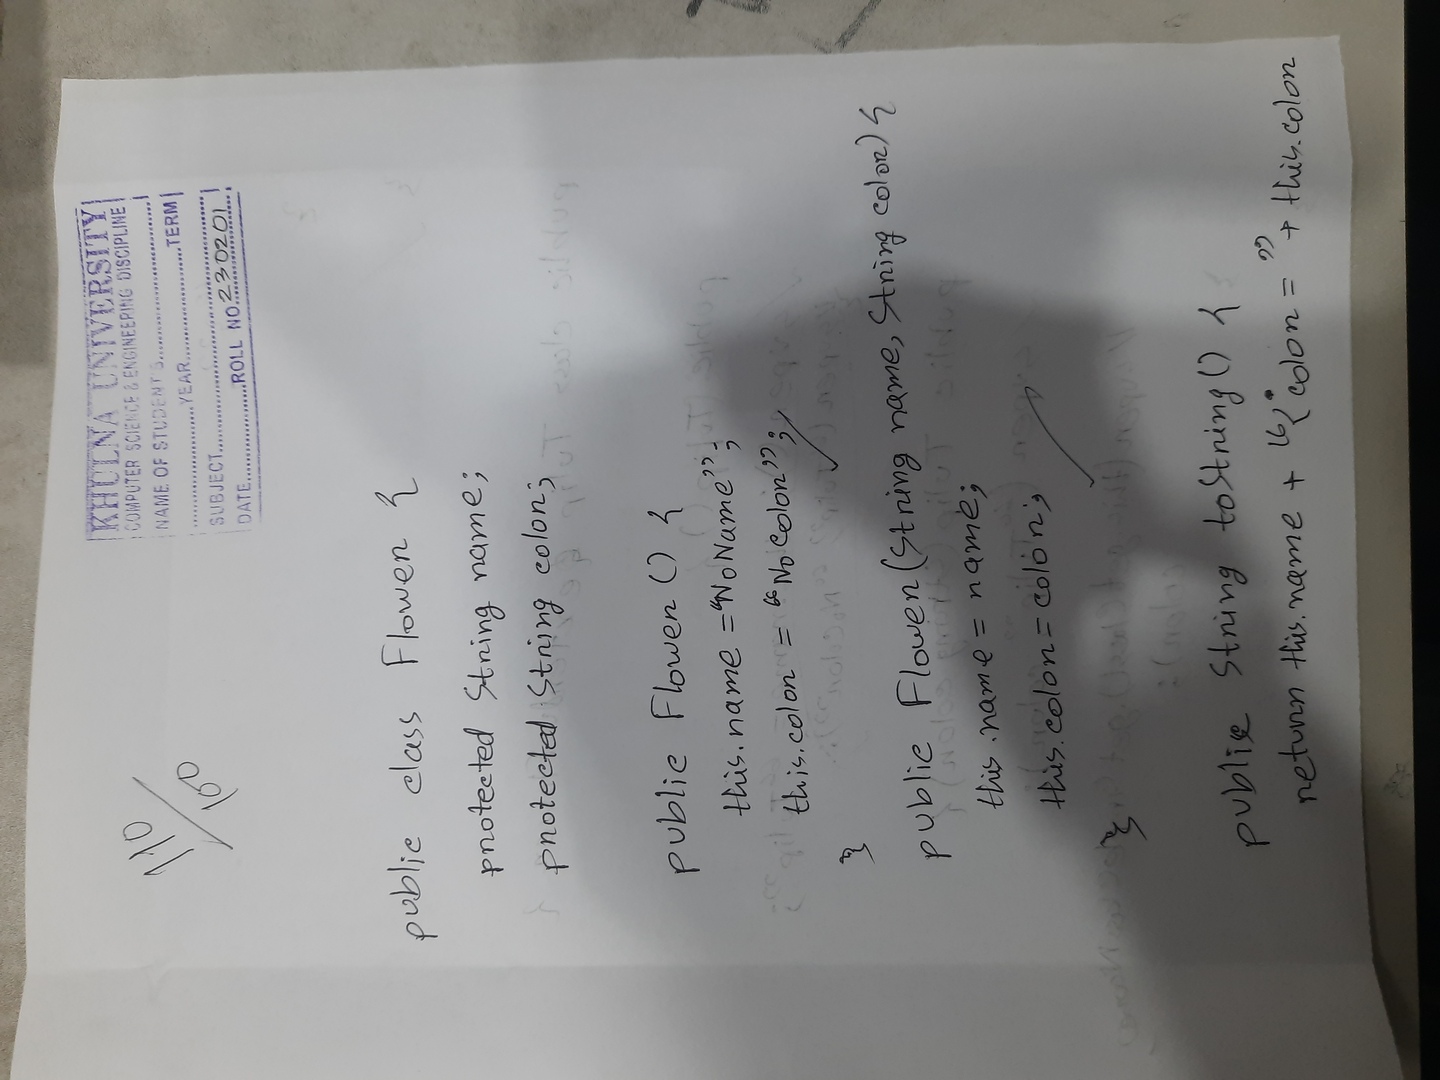 110/100
KHULNA UNIVERSITY
COMPUTER SCIENCE & ENGINEERING DISCIPLINE
NAME OF STUDENT'S....................
....................YEAR....................TERM
SUBJECT....................
DATE....................ROLL NO.230201
public class Flower {
protected String name;
protected String color;
public Flower () {
this.name = "NoName";
this.color = "No Color";
}
public Flower (String name, String color) {
this.name = name;
this.color = color;
}
public String toString () {
return this.name + "{color = " + this.color